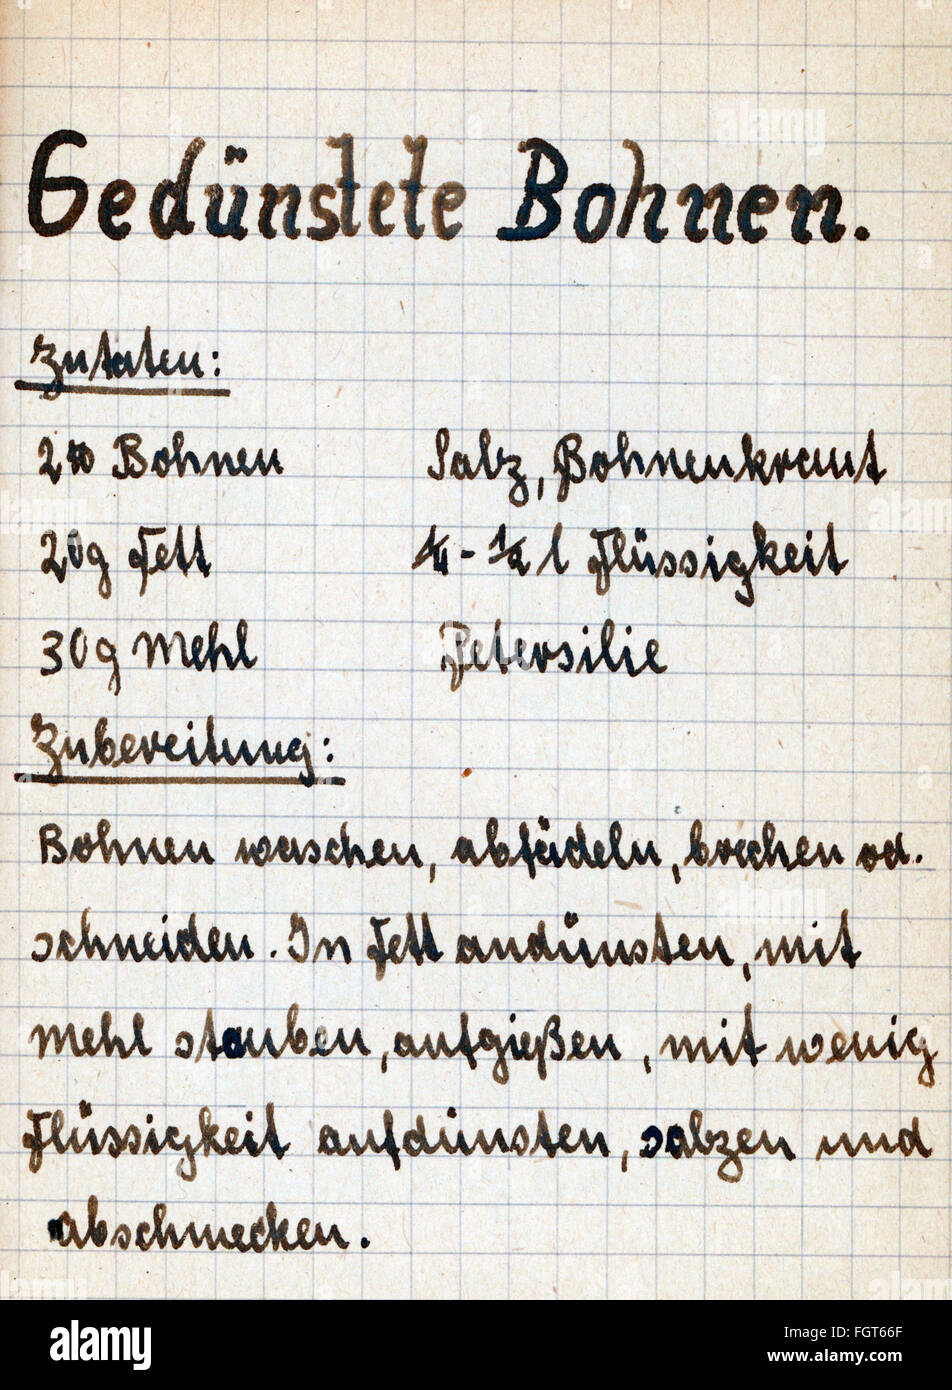 Gedünstete Bohnen.
Zutaten:
2 ℔ Bohnen Salz, Bohnenkraut
20g Fett 1/4 - 1/2 l Flüssigkeit
30g Mehl Petersilie
Zubereitung:
Bohnen waschen, abfädeln, brechen od.
schneiden. In Fett andünsten, mit
Mehl stauben, aufgießen, mit wenig
Flüssigkeit aufdünsten, salzen und
abschmecken.
alamy
Image ID: FGT66F
www.alamy.com